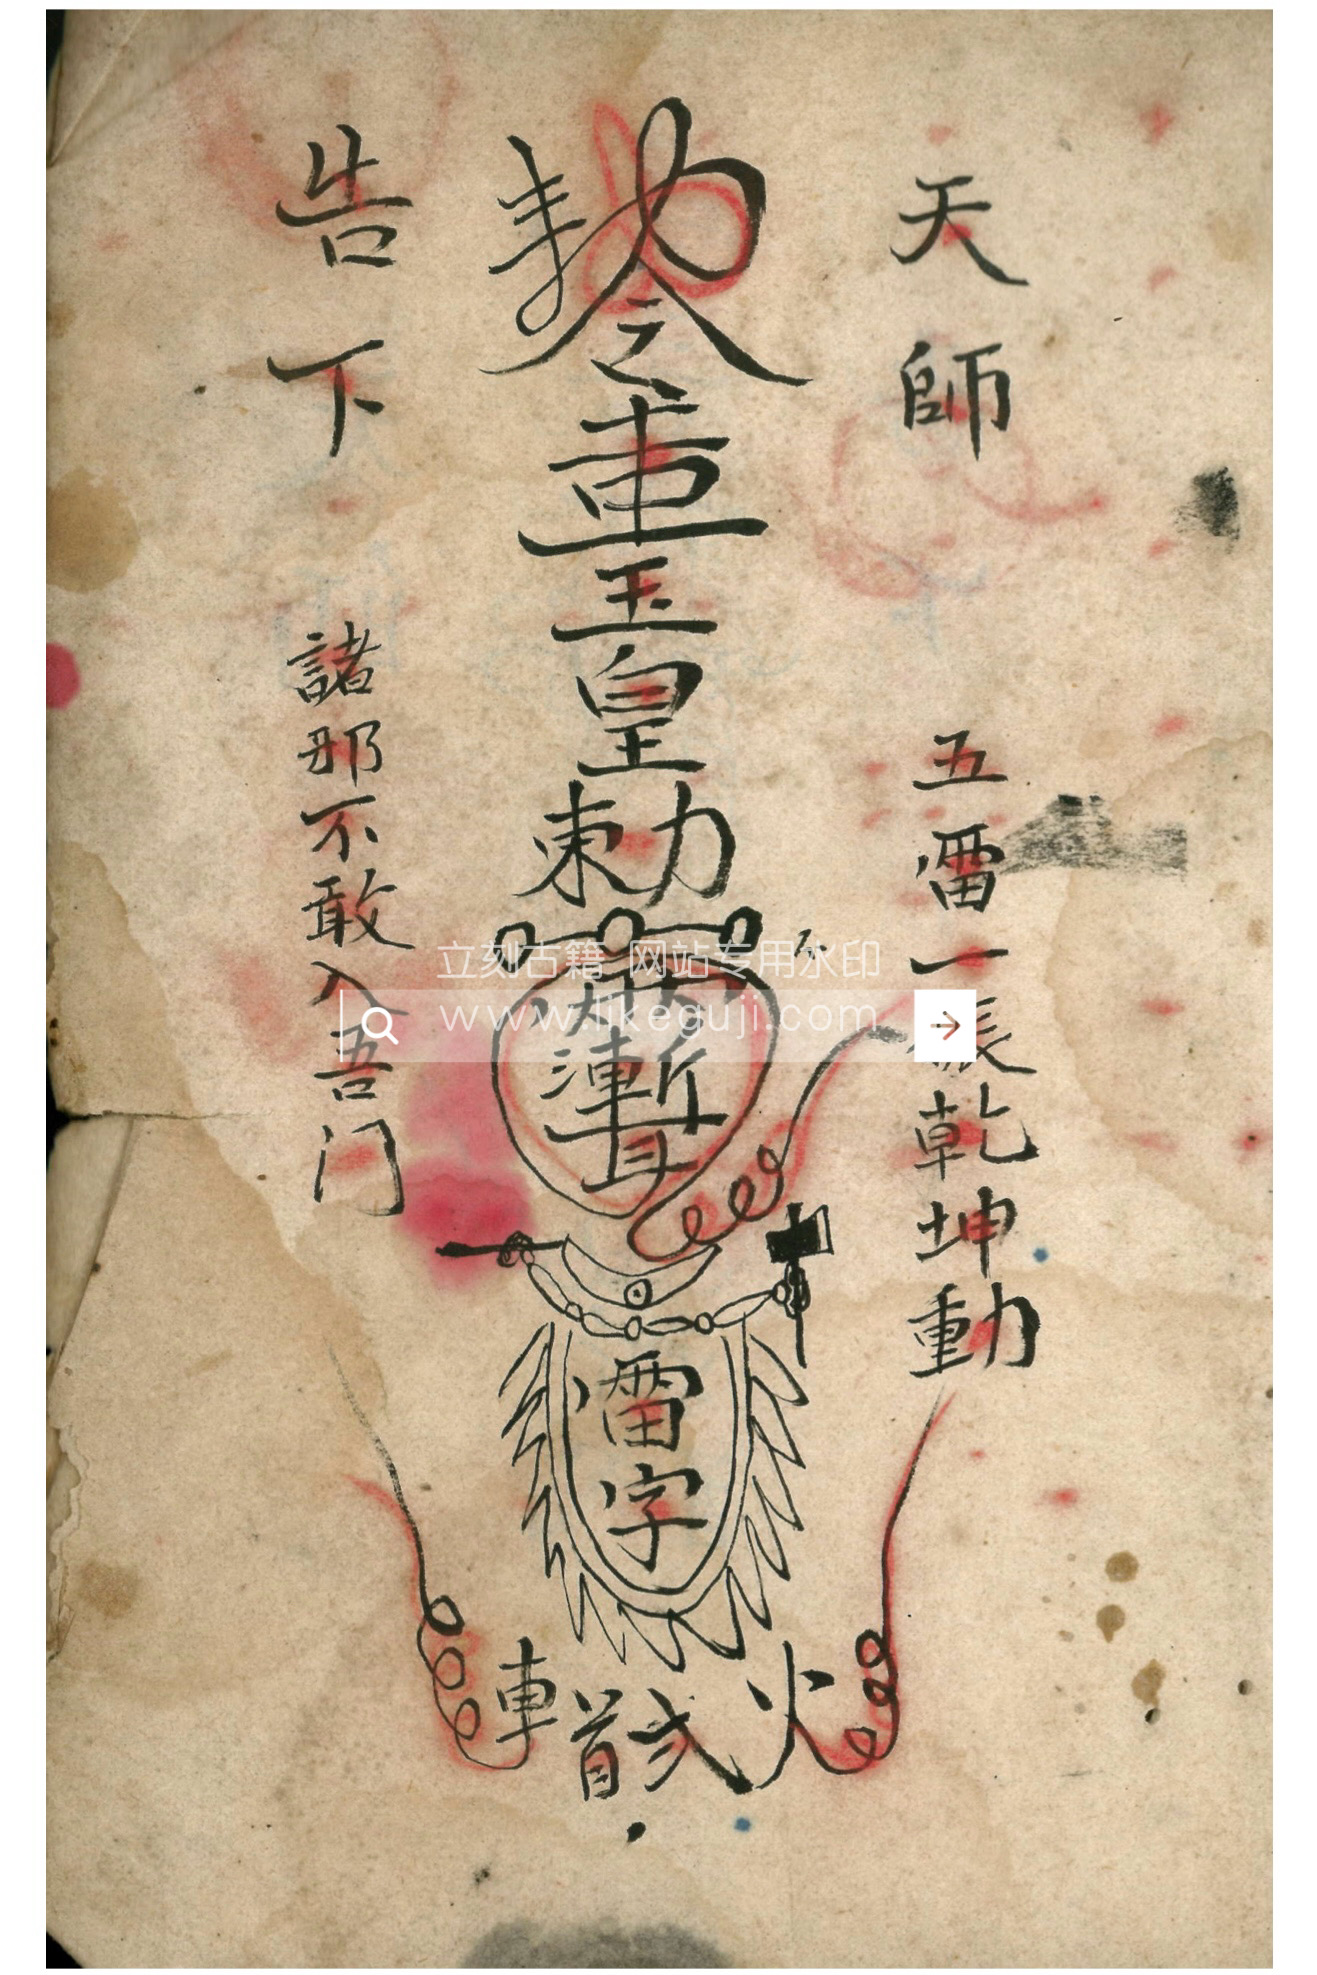 天師
五雷一振乾坤動
勅令
玉皇勅
雷字
火
車
告下
諸那不敢入吾门
立刻古籍 网站专用水印
www.likeguji.com